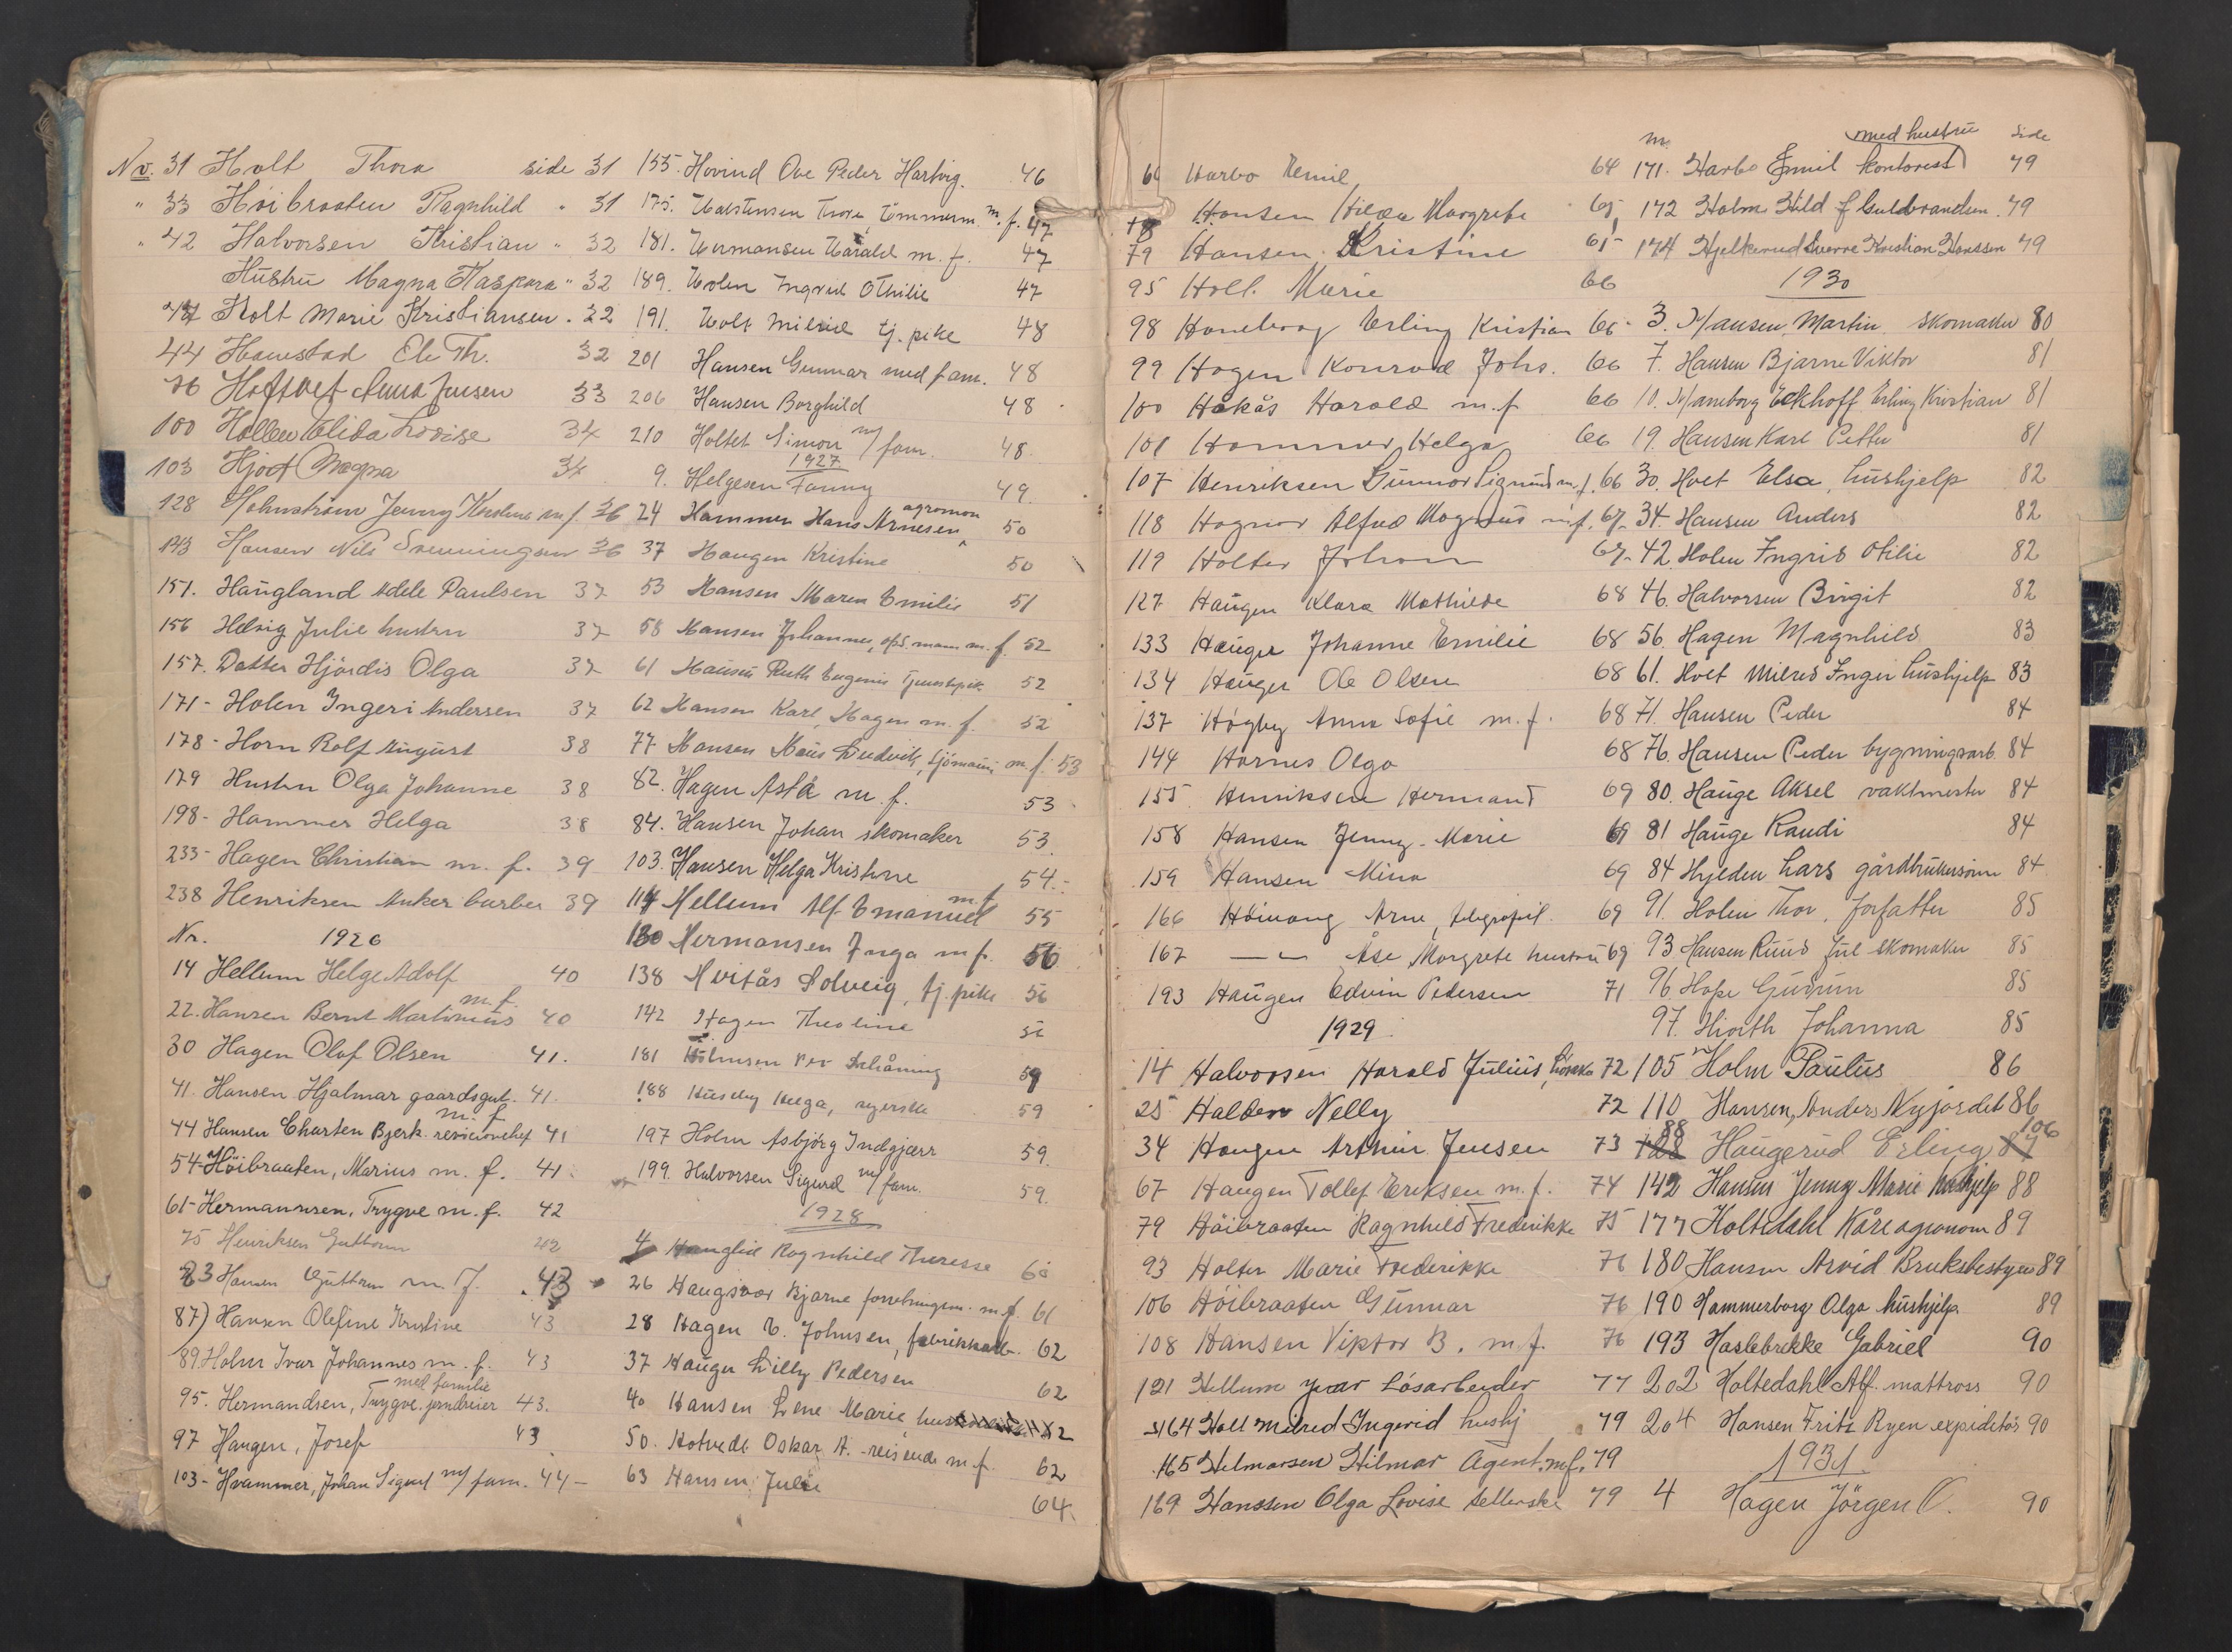 No. 31 Holt Thora side 31
" 33 Höibraaten Ragnhild " 31
" 42 Halvorsen Kristian " 32
Hustru Magna Kaspara " 32
Holt Marie Kristiansen . 32
44 Ole Th. 32
76 Anna Jensen 33
100 Elida Lovise 34
103 Hjort Magna 34
128 Holmström Jenny m f. 36
143 Hansen Nils Svenningsen 36
151. Haugland Adele Paulsen 37
156 Helvig Julie hustru 37
157. Datter Hjördis Olga 37
171 - Holen Ingeri Andersen 37
178 - Horn Rolf August 38
179 Hustru Olga Johanne 38
198 - Hammer Helga 38
233 - Hagen Christian m. f. 39
238 Henriksen Anker barber 39
Nr. 1926
14 Hellum Helge Adolf 40
m. f.
22. Hansen Bernt Martinius 40
30 Hagen Olof Olsen 41.
41. Hansen Hjalmar gaardsgut. 41.
m. f.
44 Hansen Charten Bjerk. revisionchef 41
54 - Höibraaten, Marius m. f. 41.
61 - Hermannsen, Trygve m. f. 42
75 Henriksen Guttorm 42
83 Hansen Guttorm m. f. 43
87) Hansen Olefine Kristine 43
89. Holm Ivar Johannes m. f. 43
med familie
95. Hermandsen, Trygve. jerndreier 43.
97 Haugen, Josef 43
103 - Hvammer, Johan Sigurd m/ fam. 44 -
155. Hovind Ove Peder Hartvig. 46
175. Thore, tömmerm. m. f. 47
181. Hermansen Harald m. f. 47
189. Holen Ingrid Othilie 47
191. Holt Milred tj. pike 48
201 Hansen Gunnar med fam. 48
206 Hansen Borghild 48
210 Holtet Simon m/ fam. 48
1927
9. Helgesen Fanny 49.
agronom
24 Hammer Hans Arnesen 50
37 Haugen Kristine 50
53 Hansen Maren Emilie 51
58 Hansen Johannes, ops.mann m. f. 52
61 Hansen Ruth Eugenie Tjenestpik. 52
62 Hansen Karl, Hagen m. f. 52
77 Hansen Hans Ludvik, Sjömann m. f. 53
82. Hagen Asta m. f. 53
84. Hansen Johan skomaker 53.
103. Hansen Helga Kristine 54. -
m. f.
114 Hellum Alf Emanuel 55
130 Hermansen Inga m f. 56
138 Hvitås Solveig, tj. pike 56
142 Hagen Theoline 56
181 Holmsen Per 59
188 Huseby Helga, syerske 59
197 Holm Asbjörg Indgjær 59.
199. Halvorsen Sigurd m/ fam. 59.
1928
4 Ragnhild Theresse 60
26 Haugsvor Bjarne m. f. 61
28 Hagen E. Johnsen, fabrikkarb. 62
37 Hauger Willy Pedersen 62
40 Hansen Lene Marie, 62
50. Hotvedt Oskar A. - reisende m f. 62
63 Hansen Julie 64.
Harbo Hemil 64
78 Hansen Hilda Margrete 65
79 Hansen Kristine 65
95 Holt. Marie 66
98 Haneborg Erling Kristian 66 -
99 Hagen Konrad Johs. 66
100 Håkås Harald m. f 66
101 Hammer, Helga 66
107 Henriksen Gunnar Sigmund m. f. 66
118 Hagnor Alfred Magnus m f. 67
119 Holter Johan 67 -
127 Haugen Klara Mathilde 68
133 Hauger Johanne Emilie 68
134 Hauger Ole Olsen 68
137 Högby Anna Sofie m. f. 68
144 Hornes Olga 68
155 Henriksen Hermand 69
158 Hansen Jenny - Marie 69
159 Hansen Mina 69
166 Arne, 69
167 — " — Åse Margrete hustru 69
193 Haugen Edvin Pedersen 71
1929
14 Halvorsen Harald Julius, 72
25 Halden Nelly 72
34 Haugen Arthur Jensen 73
67 Haugen Tollef Eriksen m. f. 74
79 Höibraaten Ragnhild Fredrikke 75
93 Holter Marie Frederikke 76
106 Höibraaten Gunnar 76
108 Hansen Viktor B. m. f. 76
121 Hellum Ivar Lösarbeider 77
164 Holt Milred Ingerid hushj 79
165 Hilmarsen Hilmar Agent. m f. 79
169 Hanssen Olga Lovise 79
nr. med hustru Side
171. Harbo Emil kontorist 79
172 Holm Hild f Guldbrandsen. 79
174 Hjelkerud Sverre Kristian Hanssen 79
1930
3. Hansen, Martin skomaker 80
7. Hansen Bjarne Viktor 81
10. Haneborg Eckhoff Erling Kristian 81
19. Hansen Karl Petter 81
30. Holt Elsa, hushjelp 82
34. Hansen Anders 82
42. Holen Ingrid Otilie 82
46. Halvorsen Birgit 82
56. Hagen Magnhild 83
61. Holt Milred Inger hushjelp 83
71. Hansen Peder 84
76. Hansen Peder bygningsarb. 84
80. Hauge Aksel vaktmester 84
81 Hauge Randi 84
84 Hjelden Lars gårdbrukersönn 84
91. Holen Thor, forfatter 85
93 Hansen Ruud Jul skomaker 85
96. Hope Gudrun 85
97. Hiorth Johanna 85
105 Holm Paulus 86
110 Hansen, Anders Nyjordet 86
88 Haugerud Erling 106
142 Hansen Jenny Marie hushjelp 88
177 Holtedahl Kåre agronom 89
180 Hansen Arvid Bruksbestyrer 89
190 Hammerborg Olga hushjelp. 89
193 Haslebrekke Gabriel 90
202 Holtedahl Alf. mattross 90
204 Hansen Frits Ryen expiditör 90
1931.
4 Hagen Jörgen O. 90